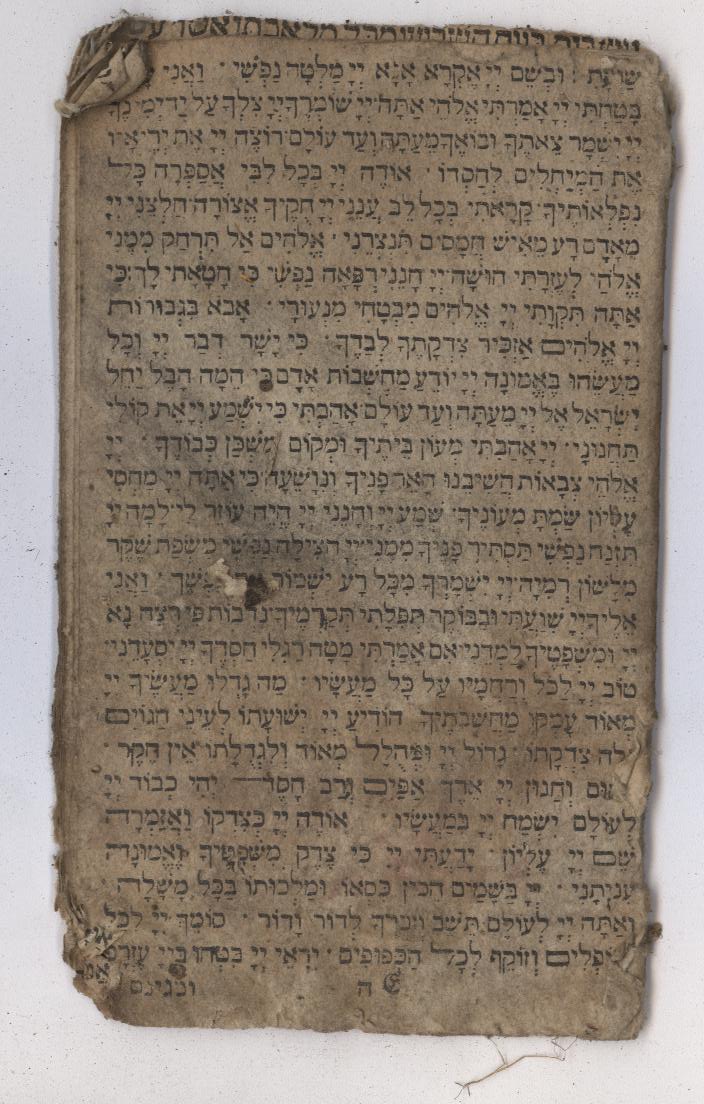 שועת : ובשם יי אקרא אנא יי מלטה נפשי · ואני
בטחתי יי אמרתי אלהי אתה יי שומרך יי צלך על יד ימינך
יי ישמר צאתך ובואך מעתה ועד עולם רוצה יי את יריאיו
את המיחלים לחסדו · אודה יי בכל לבי אספרה כל
נפלאותיך קראתי בכל לב ענני יי חקיך אצורה חלצני יי
מאדם רע מאיש חמסים תנצרני · אלהים אל תרחק ממני
אלהי לעזרתי חושה יי חנני רפאה נפשי כי חטאתי לך כי
אתה תקותי יי אלהים מבטחי מנעורי · אבא בגבורות
יי אלהים אזכיר צדקתך לבדך · כי ישר דבר יי וכל
מעשהו באמונה יי יודע מחשבות אדם כי המה הבל יחל
ישראל אל יי מעתה ועד עולם אהבתי כי ישמע יי את קולי
תחנוני · יי אהבתי מעון ביתיך ומקום משכן כבודך · יי
אלהי צבאות השיבנו האר פניך ונושעה כי אתה יי מחסי
עליון שמת מעוניך · שמע יי וחנני יי היה עוזר לי למה יי
תזנח נפשי תסתיר פניך ממני יי הצילה נפשי משפת שקר
מלשון רמיה יי ישמרך מכל רע ישמור נפשך · ואני
אליך יי שועתי ובבוקר תפלתי תקדמיך נדבות פי רצה נא
יי ומשפטיך למדני אם אמרתי מטה רגלי חסדך יי יסעדני
טוב יי לכל ורחמיו על כל מעשיו · מה גדלו מעשיך יי
מאוד עמקו מחשבתיך הודיע יי ישועתו לעיני הגוים
לה צדקתו · גדול יי ומהלל מאוד ולגדלתו אין חקר ·
וחנון יי ארך אפים ורב חסד יהי כבוד יי
לעולם ישמח יי במעשיו · אודה יי כצדקו ואזמרה
שם יי עליון · ידעתי יי כי צדק משפטיך ואמונה
עניתני · יי בשמים הכין כסאו ומלכותו בכל משלה ·
ואתה יי לעולם תשב וזכרך לדור ודור · סומך יי לכל
נופלים וזוקף לכל הכפופים · יראי יי בטחו ביי עזרם
ה